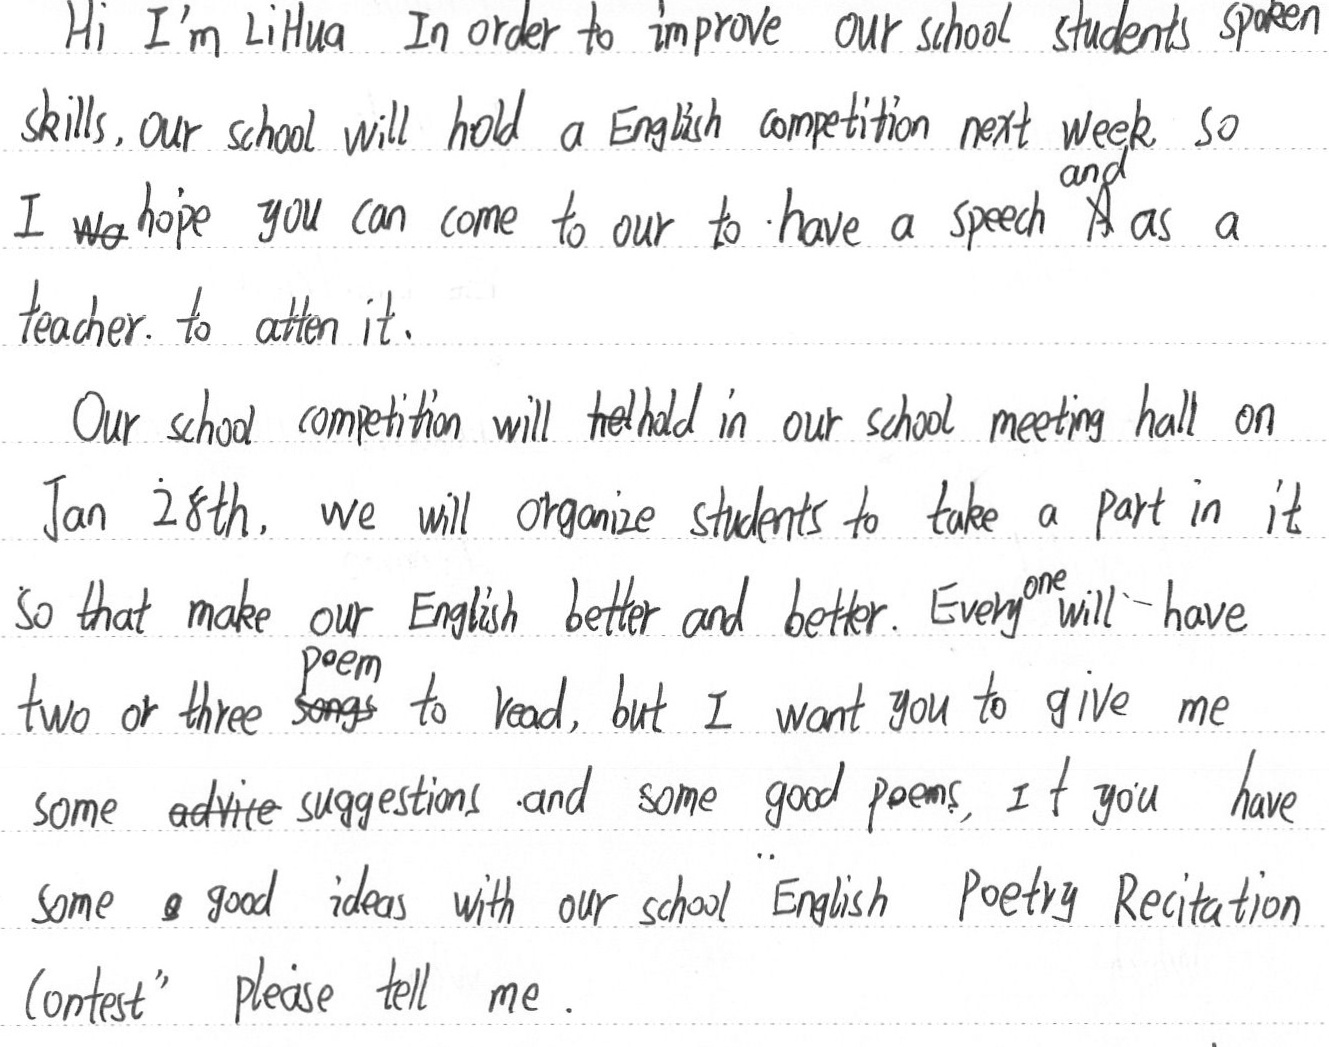 Hi I'm LiHua In order to improve our school students spoken
skills, our school will hold a English competition next week so
I hope you can come to our to have a speech and as a
teacher. to atten it.
Our school competition will hold in our school meeting hall on
Jan 28th, we will organize students to take a part in it
so that make our English better and better. Everyone will have
two or three poem to read, but I want you to give me
some suggestions and some good poems, If you have
some good ideas with our school English Poetry Recitation
Contest" please tell me.